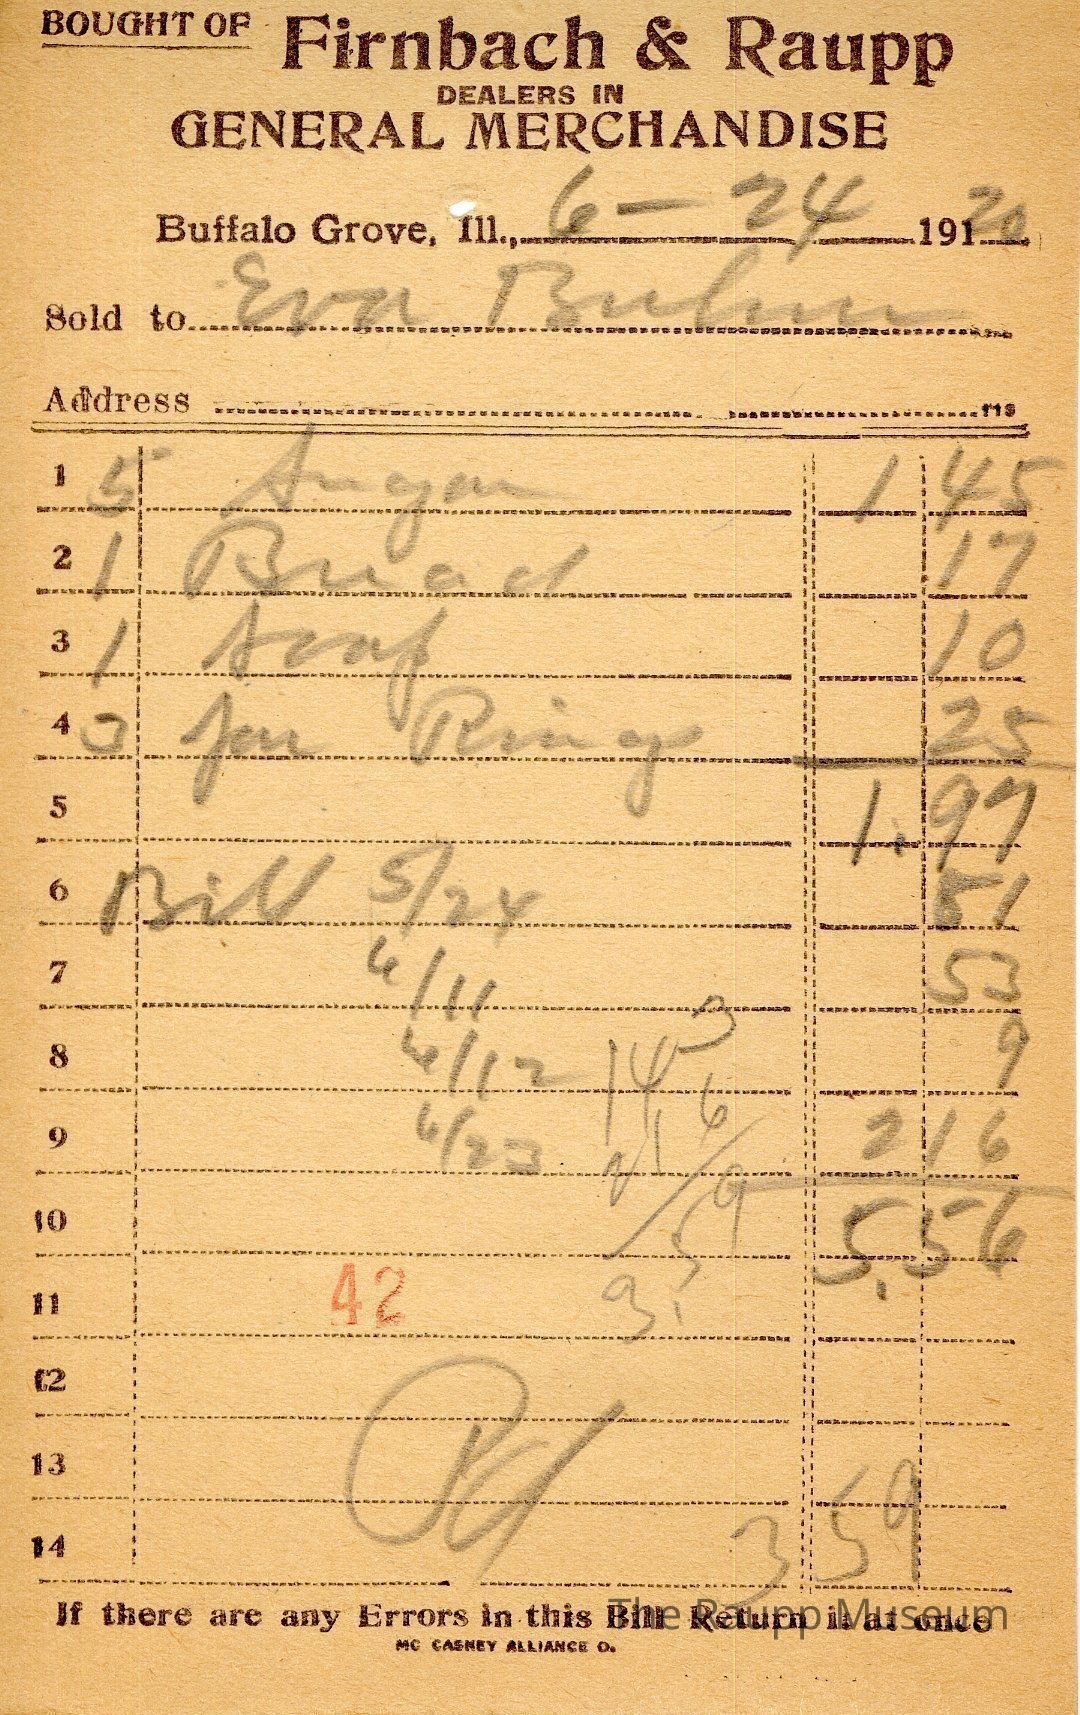 BOUGHT OF Firnbach & Raupp
DEALERS IN
GENERAL MERCHANDISE
Buffalo Grove, Ill., 6 - 24 191 20
Sold to Eva
Address
1 5 Sugar 1 45
2 1 Bread 17
3 1 Soap 10
4 3 Jar Rings 25
5 1.97
6 Bill 5/24 81
7 6/11 53
8 6/12 9
9 6/23 2 16
10 5.56
11 42
12
13
14 3 59
If there are any Errors in this Bill Return it at once
MC CASKEY ALLIANCE O.
The Raupp Museum